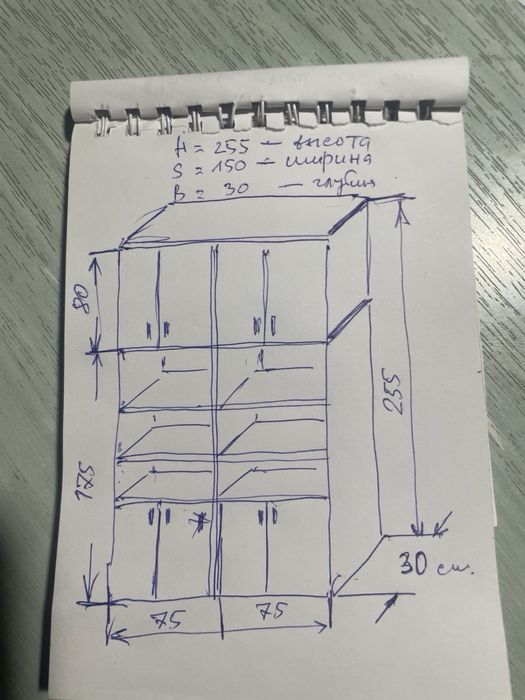 H = 255 — высота
S = 150 — ширина
B = 30 — глубин
80
175
255
30 см.
75
75